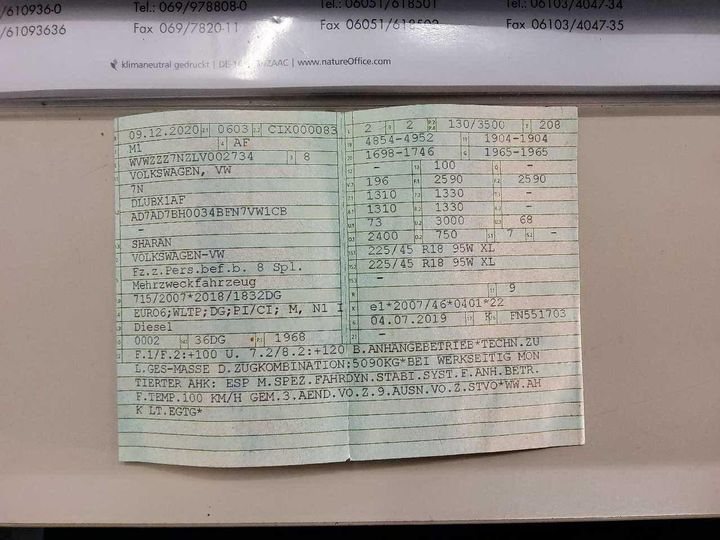 /61093​6-0
Tel.: 069/978808-0
Tel.: 06051/618501
Tel.: 06103/4047-34
/61093636
Fax 069/7820-11
Fax 06051/618502
Fax 06103/4047-35
klimaneutral gedruckt | DE- ZAAC | www.natureOffice.com
09.12.2020 0603 CIX000083
M1 AF
WVWZZZ7NZLV002734 8
VOLKSWAGEN, VW
7N
DLUBX1AF
AD7AD7BH0034BFN7VW1CB
-
SHARAN
VOLKSWAGEN-VW
Fz.z.Pers.bef.b. 8 Spl.
Mehrzweckfahrzeug
715/2007*2018/1832DG
EURO6;WLTP;DG;PI/CI; M, N1 I
Diesel
0002 36DG 1968
2 2 130/3500 208
4854-4952 1904-1904
1698-1746 1965-1965
- 100 -
196 2590 2590
1310 1330 -
1310 1330 -
73 3000 68
2400 750 7 -
225/45 R18 95W XL
225/45 R18 95W XL
-
9
e1*2007/46*0401*22
04.07.2019 K FN551703
-
F.1/F.2:+100 U. 7.2/8.2:+120 B.ANHÄNGEBETRIEB*TECHN.ZU
L.GES-MASSE D.ZUGKOMBINATION:5090KG*BEI WERKSEITIG MON
TIERTER AHK: ESP M.SPEZ.FAHRDYN.STABI.SYST.F.ANH.BETR.
F.TEMP.100 KM/H GEM.3.AEND.VO.Z.9.AUSN.VO.Z.STVO*WW.AH
K LT.EGTG*